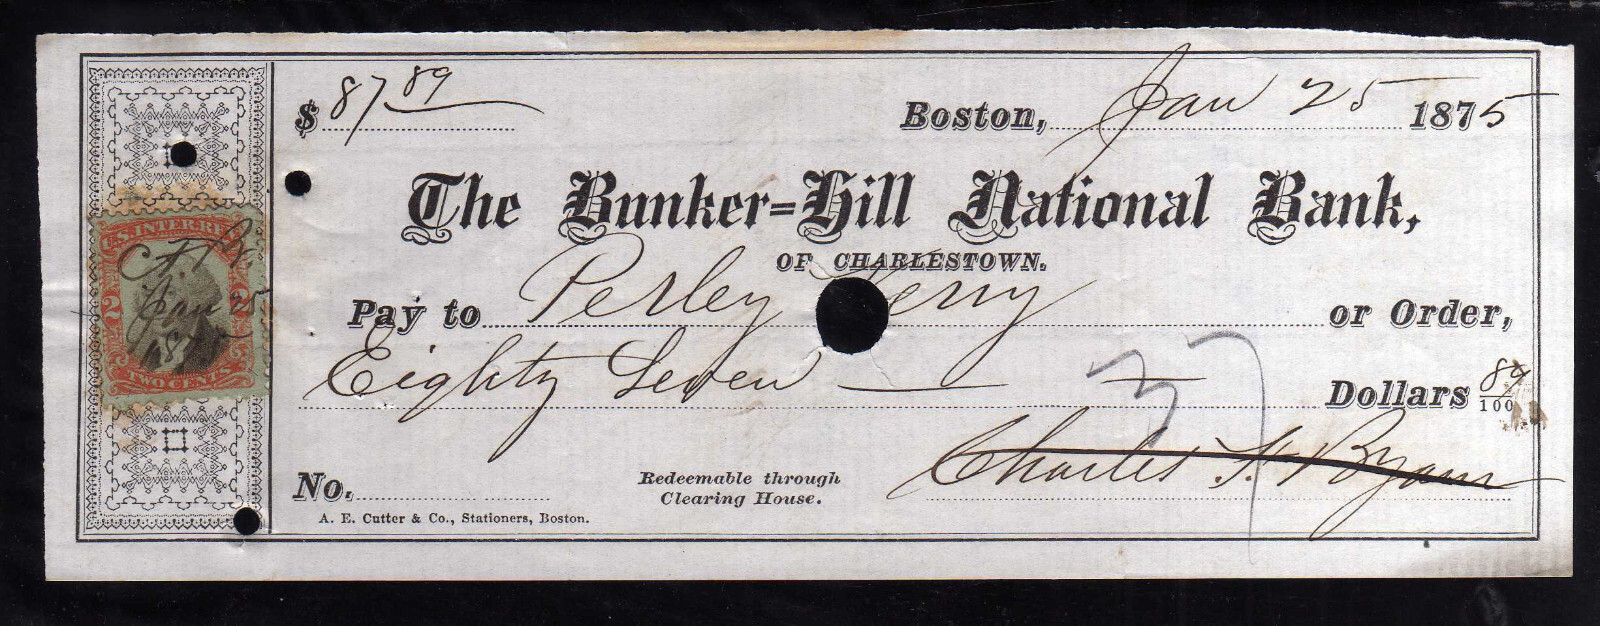 $ 87 89
Boston, Jan 25 1875
The Bunker=Hill National Bank,
OF CHARLESTOWN.
Pay to Perley or Order,
Eighty Seven Dollars 89/100
37
Charles F. Byam
No.
Redeemable through
Clearing House.
A. E. Cutter & Co., Stationers, Boston.
U.S. INTER. REV.
C. F. B.
Jan 25
2 2
TWO CENTS